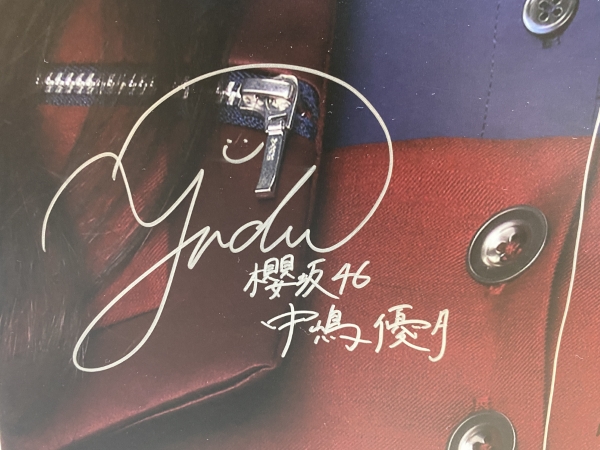 yndu
櫻坂46
中嶋優月